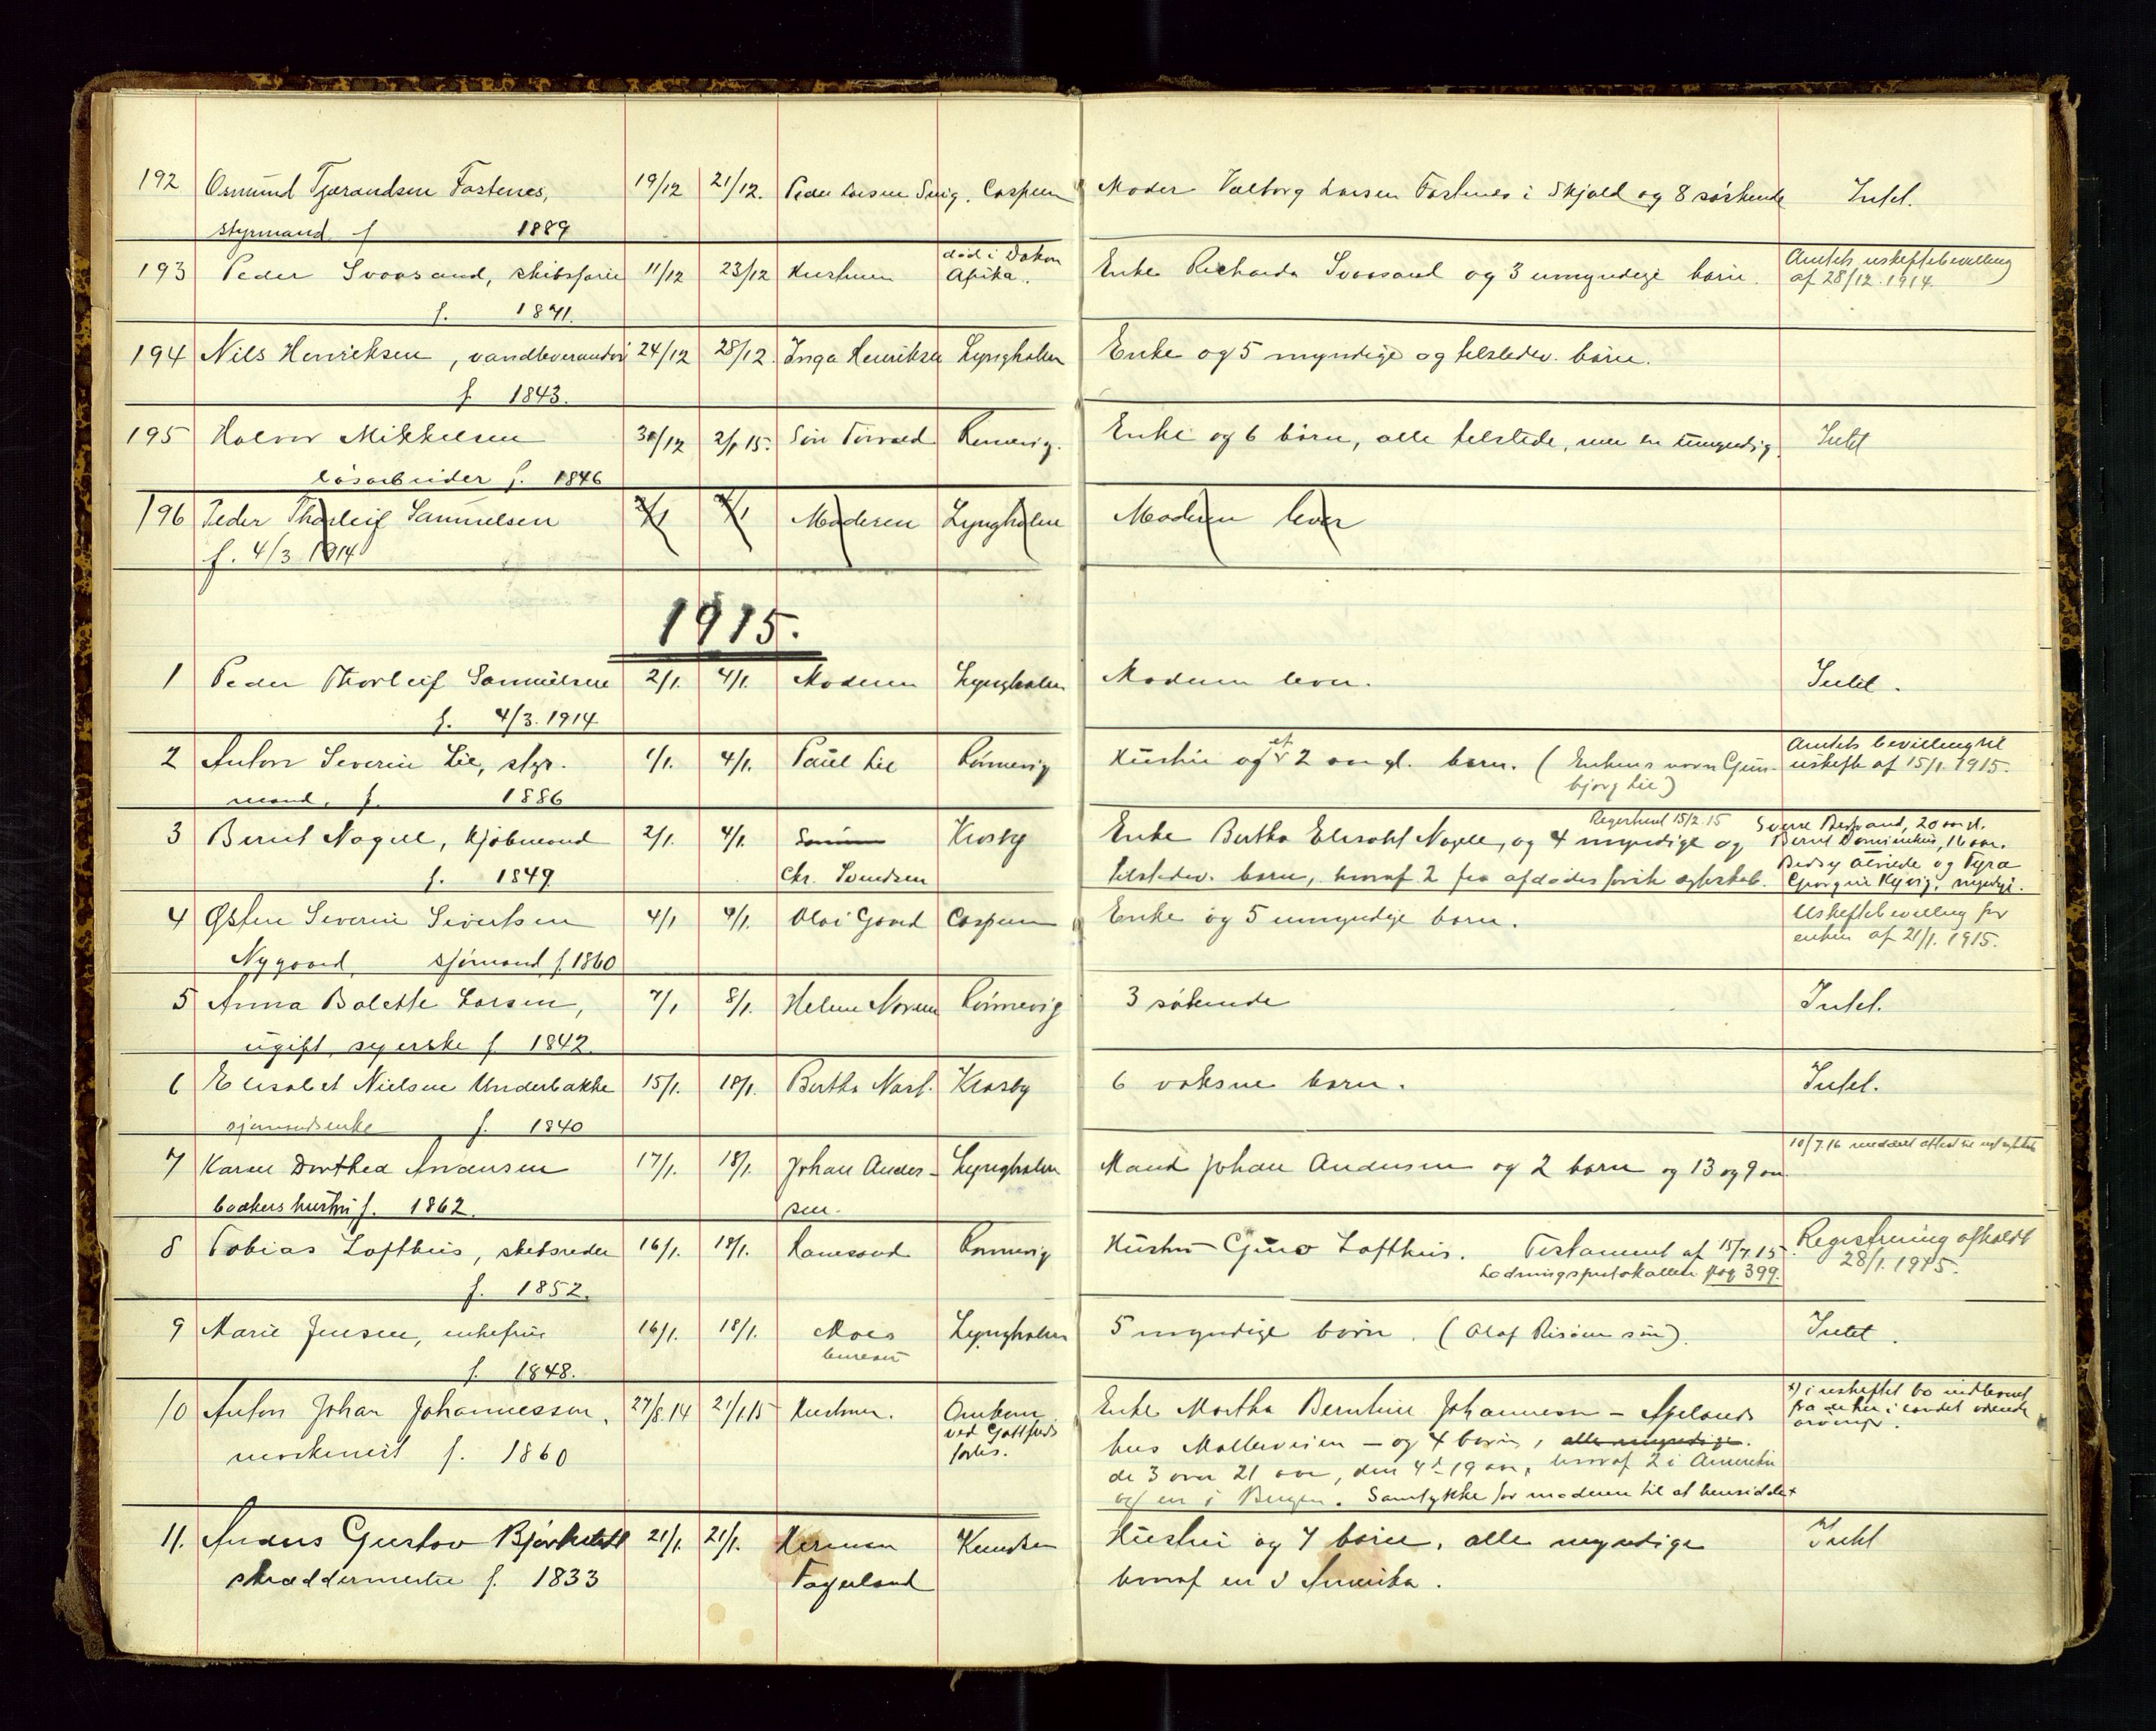 192 Osmund Tjerandsen Fastenes, 19/12 21/12. Peder Larsen Svig. Caspersen Moder Valborg Larsen Fastenes i Skjold og 8 söskende Intet.
styrmand f 1889
193 Peder Svaasand, skibsfører 11/12 23/12 Hustruen død i Dakar Afrika. Enke Richarda Svaasand og 3 umyndige børn. Amtets uskiftebevilling
f. 1871. af 28/12.1914.
194 Nils Henriksen, vandleverandør 24/12 28/12. Inga Henriksen Lyngholm Enke og 5 myndige og tilstedev. børn.
f. 1843.
195 Halvor Mikkelsen 30/12 2/1 15. Søn Torvald Rønnevig. Enke og 6 børn, alle tilstede, men en umyndig. Intet
løsarbeider f. 1846
196 Peder Thorleif Samuelsen 2/1 4/1 Moderen Lyngholm Moderen lever
f. 4/3 1914
1915.
1 Peder Thorleif Samuelsen 2/1. 4/1. Moderen Lyngholm Moderen lever. Intet.
f. 4/3.1914
2 Anton Severin Lie, styr- 1/1. 4/1. Paul Lie Rønnevig Hustru og et 2 aar gl. barn. (Enkens navn Gun- Amtets bevilling til
mand, f. 1886 bjørg Lie) uskifte af 15/1.1915.
3 Bernt Nagell, kjøbmand 2/1. 4/1. Krosby Enke Bertha Elisabet Nagell, og 4 myndige og Registreret 15/2.15 20 aar gl.
f. 1849 Chr. Svendsen tilstedev. børn, hvoraf 2 fra afdødes forrige ægteskab. Bernt 16 aar.
Betsy og Tyra
Georgine myndige.
4 Østen Severin Sivertsen 4/1 4/1. Olai Gaard Caspersen Enke og 5 umyndige børn. Uskiftebevilling for
Nygaard, sjømand f. 1860 enken af 21/1.1915.
5 Anna Bolette Larsen, 7/1 8/1. Helene Rønnevig 3 søskende Intet.
ugift, syerske f. 1842.
6 Elisabet Nielsen Underbakke 15/1. 18/1. Bertha Krosby 6 voksne børn. Intet.
sjømandsenke f. 1840
7 Karen Dorthea Andersen 17/1. 18/1. Johan Ander- Lyngholm Mand Johan Andersen og 2 barn og 13 og 9 aar. 10/7.16 meddelt attest
baakers hustru f. 1862. sen.
8 Tobias Lofthus, skibsreder 16/1. 18/1. Rønnevig Hustru Gina Lofthus. Testament af 15/7.15. Registrering afholdt
f. 1852. pag 399. 28/1.1915.
9 Marie Jensen, enkefru 16/1. 18/1. Moes Lyngholm 5 myndige børn. (Olaf Risøen søn). Intet.
f. 1848. bureau
10 Anton Johan Johannessen, 27/8.14 21/1.15 Hustruen. Omkom Enke Martha Berntine Johannessen – Apelands
maskinist f. 1860 ved hus Møllerveien – og 4 børn, alle myndige.
de 3 over 21 aar, den 4de 19 aar, hvoraf 2 i Amerika
og en i Bergen. Samtykke for moderen til at hensidde +
+) i uskiftet bo indkommet
fra de her i landet værende
arvinger.
11. Anders Gustav 21/1. 21/1. Herman Knudsen Hustru og 7 børn, alle myndige Intet
skræddermester f. 1833 Fagerland hvoraf en i Amerika.